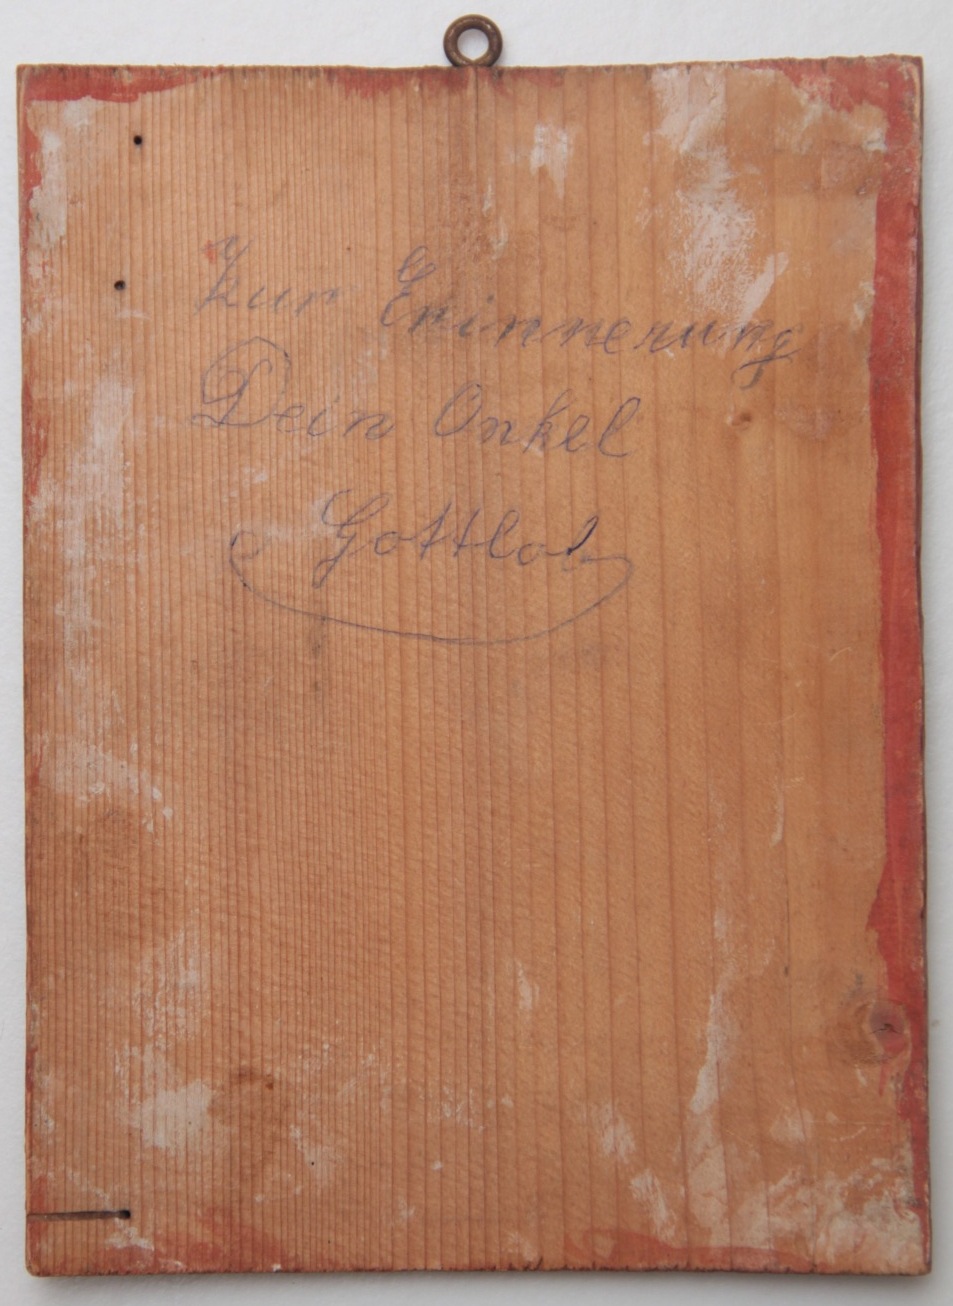 Zur Erinnerung
Dein Onkel
Gottlob